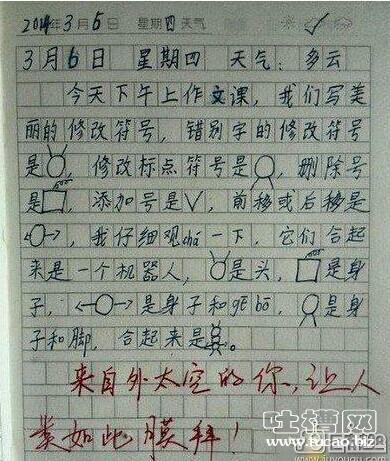 2014年3月6日 星期四 天气
3月6日 星期四 天气：多云
今天下午上作文课，我们写美
丽的修改符号，错别字的修改符号
是，修改标点符号是，删除号
是，添加号是∨，前移或后移是
，我仔细观chá一下，它们合起
来是一个机器人，是头，是身
子，是身子和gēbō，是身
子和脚，合起来是。
来自外太空的你，让人
类如此膜拜！
吐槽网
www.tucao.biz